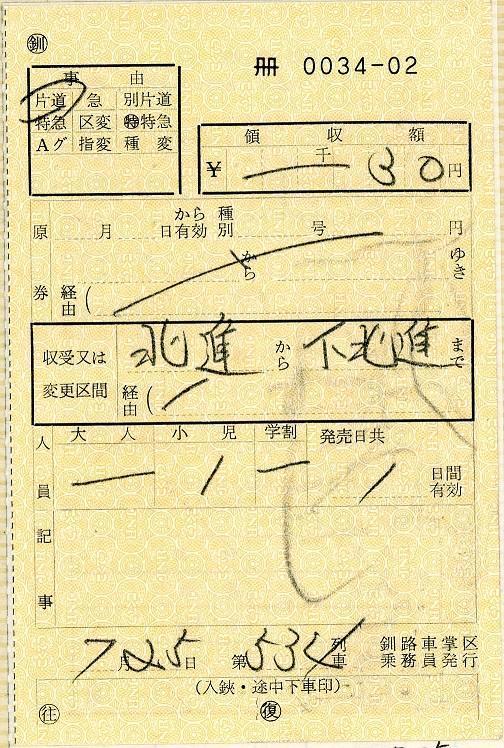 ㊥釧
冊 0034-02
事 由
片道 急 別片道
特急 区変 ㊕特急
Aグ 指変 種 変
領 収 額
¥ 一 千 30 円
原 月 日 から有効 種別 号 円
から ゆき
券 経由 (
収受又は 北進 から 下北進 まで
変更区間 経由 (
人 大 人 小 児 学割 発売日共
員 一 1 一 1 日間有効
記
事
7月25日 第534列車 釧路車掌区乗務員発行
(入鋏・途中下車印)
往 復